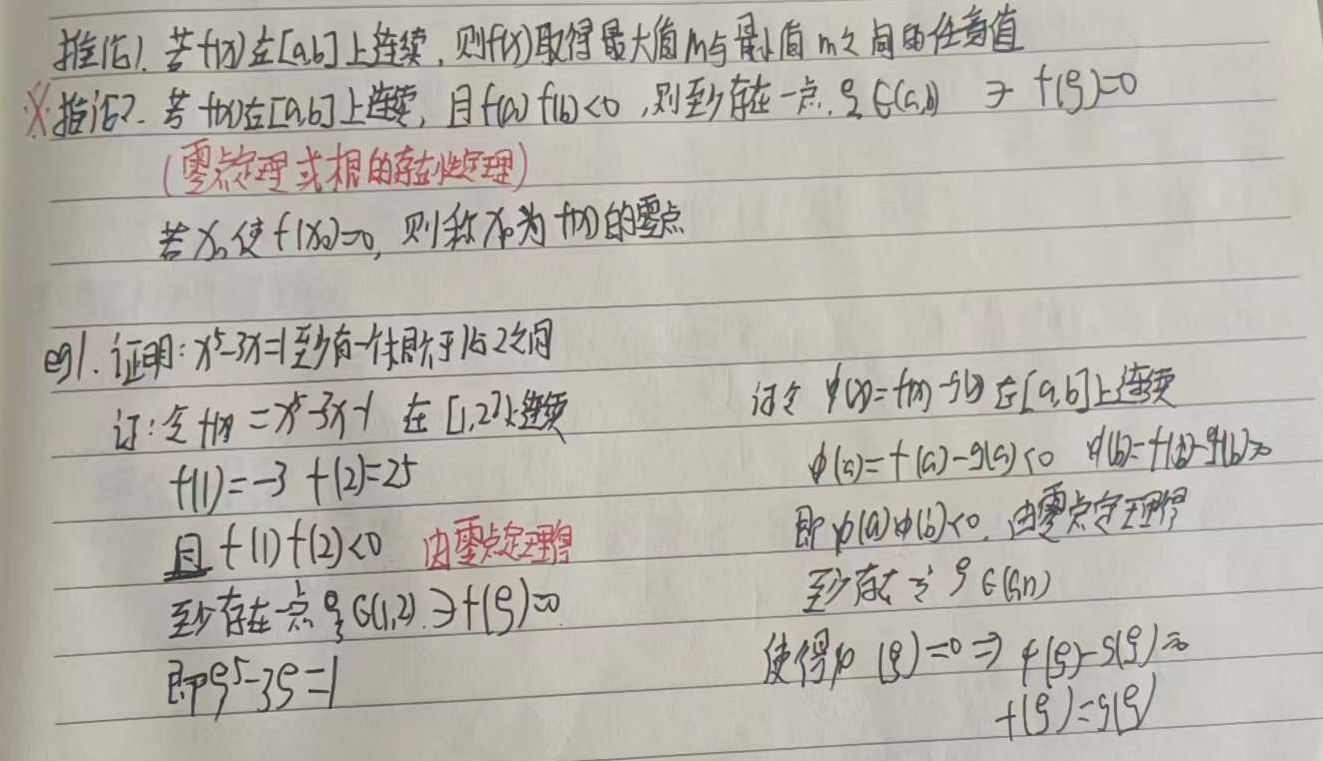 推论1. 若f(x)在[a,b]上连续,则f(x)取得最大值M与最小值m之间的任意值
※推论2. 若f(x)在[a,b]上连续,且f(a)f(b)<0,则至少存在一点ξ∈(a,b) ∋ f(ξ)=0
(零点定理或根的存在性定理)
若x₀使f(x₀)=0,则称x₀为f(x)的零点
eg1.证明:x⁵-3x=1至少有一个根介于1与2之间
证:令f(x)=x⁵-3x-1 在[1,2]上连续
f(1)=-3 f(2)=25
且f(1)f(2)<0 由零点定理得
至少存在一点ξ∈(1,2)∋f(ξ)=0
即ξ⁵-3ξ=1
证令 φ(x)=f(x)-g(x)在[a,b]上连续
φ(a)=f(a)-g(a)<0 φ(b)=f(b)-g(b)>0
即φ(a)φ(b)<0,由零点定理得
至少存在一 ξ∈
使得φ(ξ)=0⇒ f(ξ)-g(ξ)=0
f(ξ)=g(ξ)